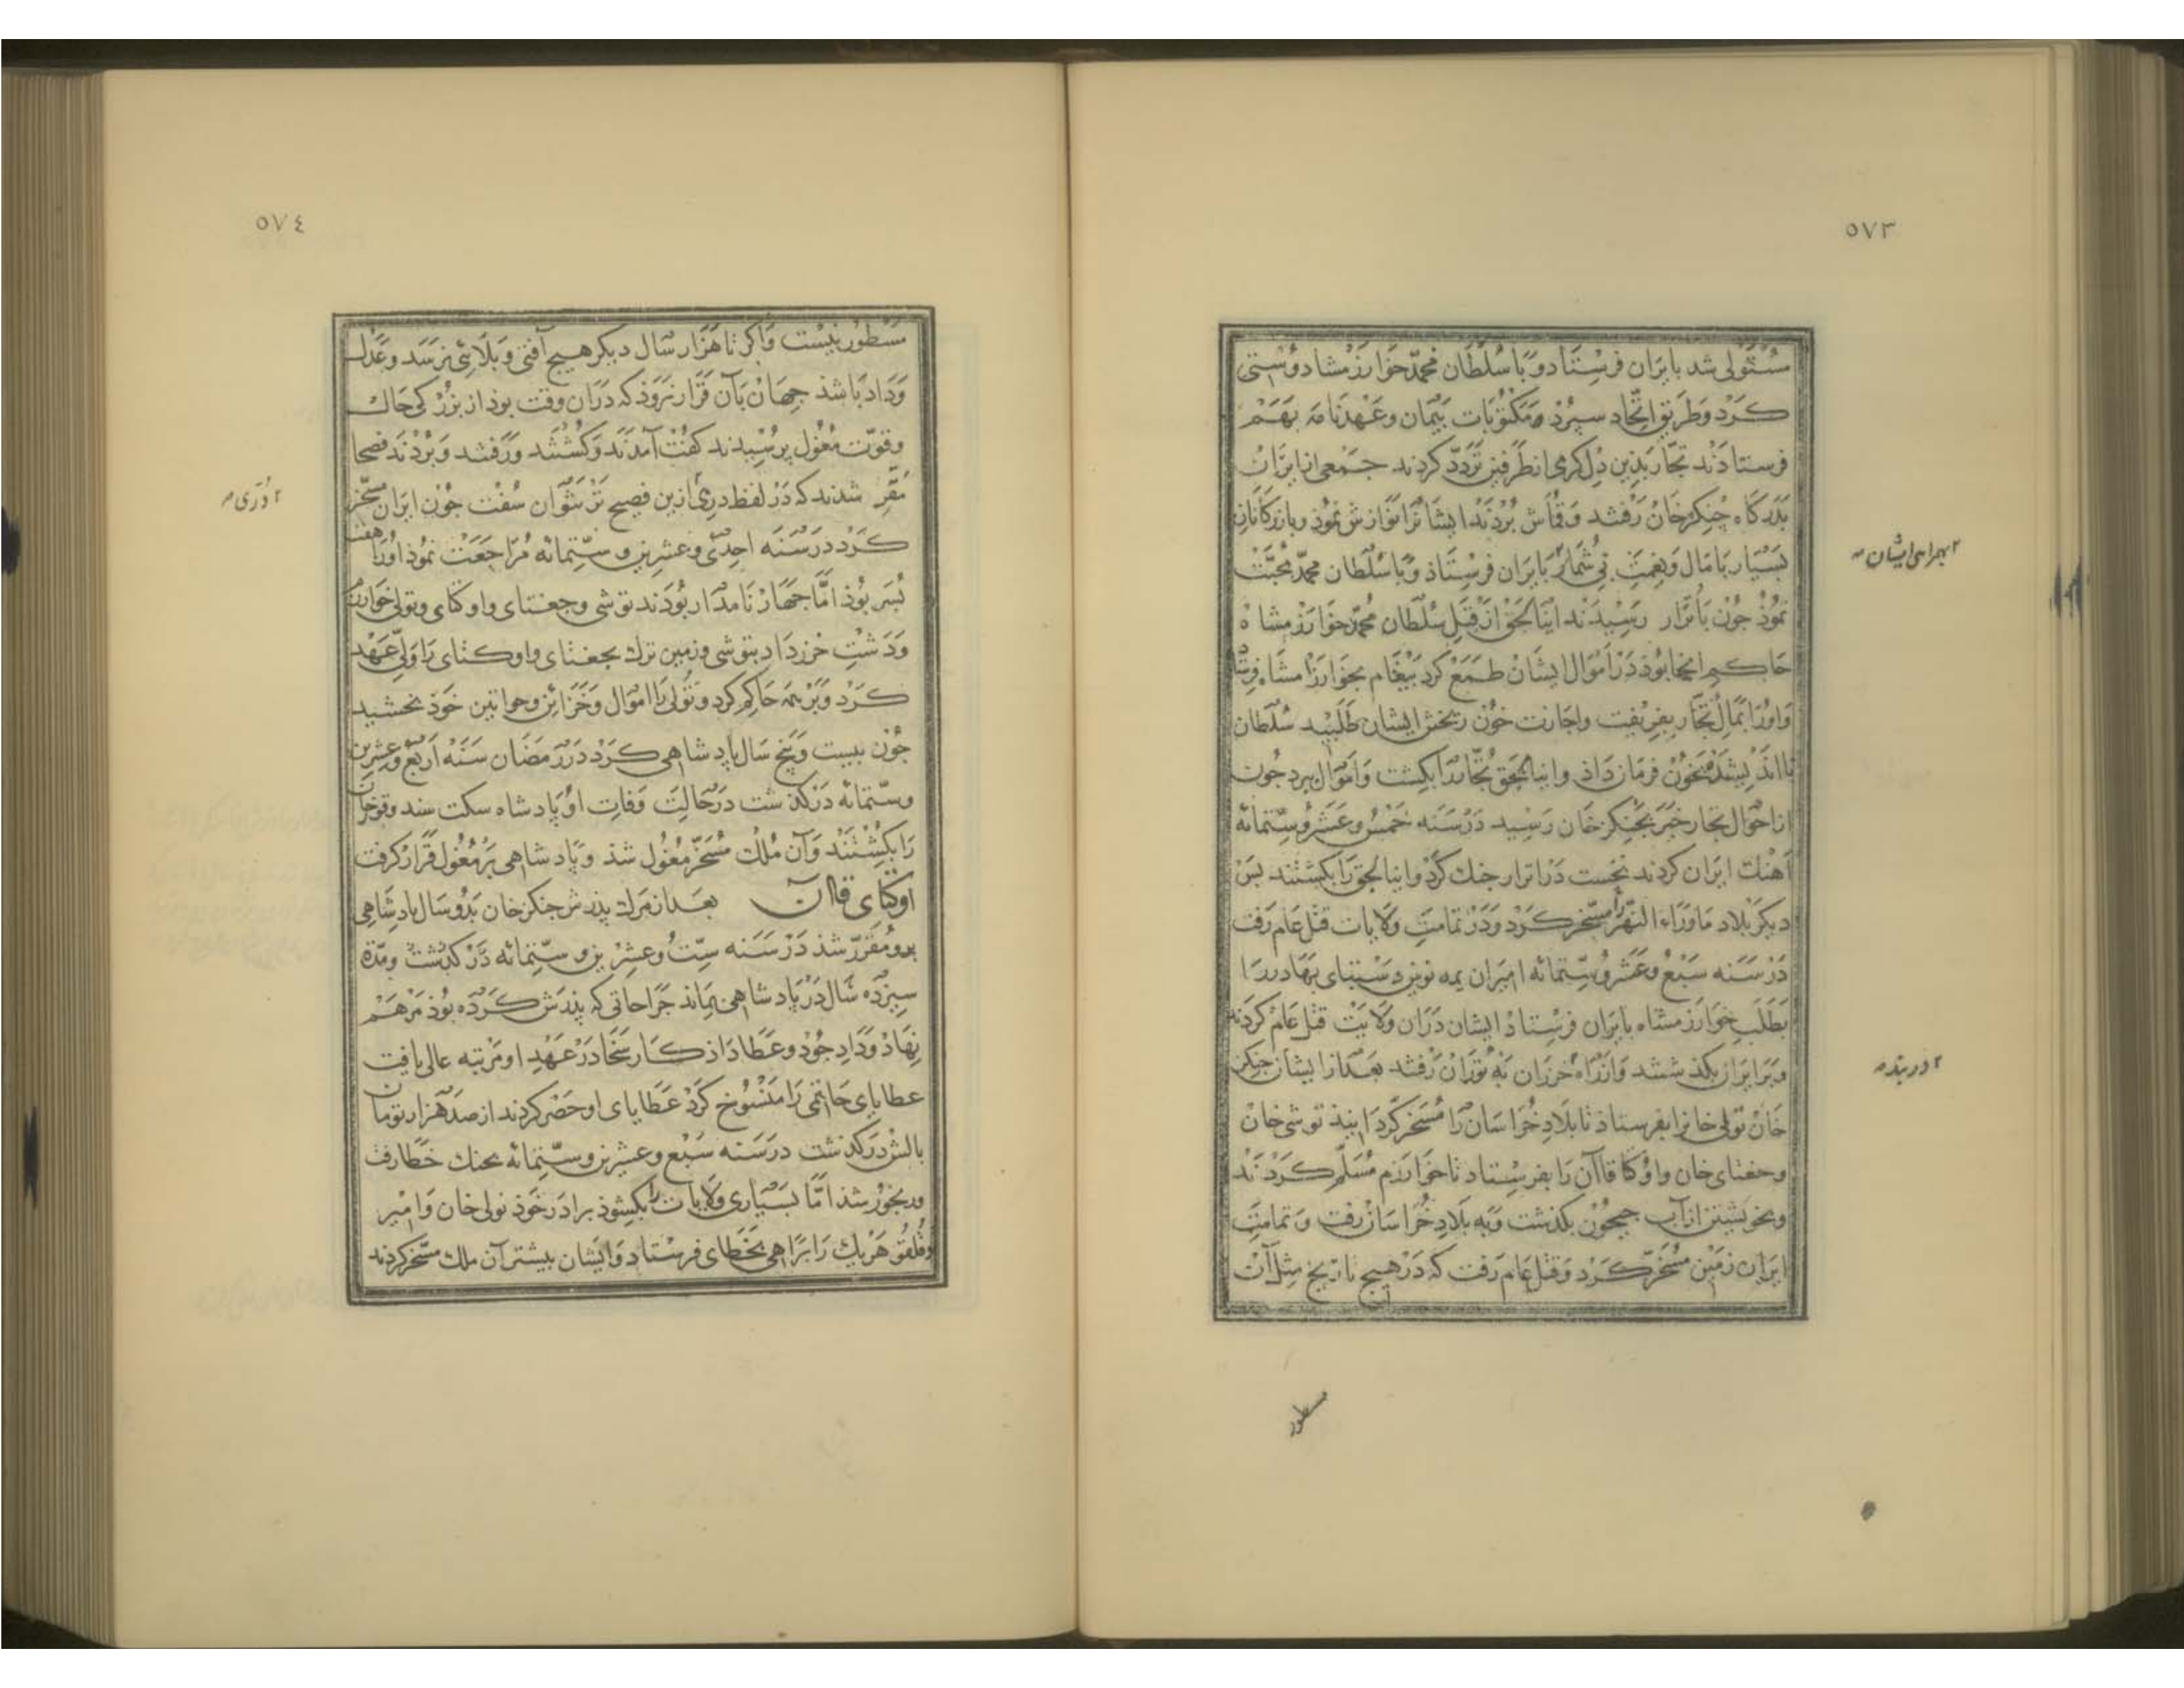 ٥٧٣
مستولی شد بایران فرستاد و با سلطان محمد خوارزمشاه دوستی
کرد و طریق اتحاد سپرد و مکتوبات پیمان و عهدنامه بهم
فرستادند تجار بدین دل کرمی از طرفین تردد کردند جمعی از ایران
بدرکاه جنکز خان رفتند و قماش بردند ایشانرا نوازش نمود و بازرکانان
۲ بهمراهی ایشان
بسیار با مال و نعمت بی شمار بایران فرستاد و با سلطان محمد محبت
نمود جون باترار رسیدند اینالحق از قبل سلطان محمد خوارزمشاه
حاکم انجا بود در اموال ایشان طمع کرد بیغام بخوارزمشاه فرستاد
و اورا بمال تجار بفریفت و اجازت خون ریختن ایشان طلبید سلطان
نا اندیشده بخون فرمان داد و اینالجق تجار را بکشت و اموال ببرد جون
از احوال تجار خبر بجنکز خان رسید در سنه خمس و عشر و ستمائه
آهنک ایران کردند نخست در اترار جنک کرد و اینالجق را بکشتند بس
دیکر بلاد ماوراء النهر را مسخر کرد و در تمامت ولایات قتل عام رفت
در سنه سبع و عشر و ستمائه امیران یمه نوین و سبتای بهادر را
بطلب خوارزمشاه بایران فرستاد ایشان در ان ولایت قتل عام کردند
۲ دربند
و بر ایران بکذشتند و از راه خزران به توران رفتند بعد از ایشان جنکز
خان تولی خانرا بفرستاد تا بلاد خراسان را مسخر کرداینید توشی خان
و جغتای خان و اوکتا قاآن را بفرستاد تا خوارزم مسلم کردند
و بخویشتن از آب جیحون بکذشت و به بلاد خراسان رفت و تمامت
ایران زمین مسخر کرد و قتل عام رفت که در هیج تاریخ مثل آن
مسطور
٥٧٤
مسطور نیست و اکر تا هزار سال دیکر هیج آفتی و بلائی نرسد و عدل
و داد باشد جهان بآن قرار نرود که در ان وقت بود از بزرکی حال
و قوت مغول برسیدند کفت آمدند و کشتند و رفتند و بردند فصحا
۲ دری
مقر شدند که در لفظ دری ازین فصیح تر نتوان سفت جون ایران مسخر
کرد در سنه احدی و عشرین و ستمائه مراجعت نمود اورا هفت
بسر بود اما جهار نامدار بودند توشی و جغتای و اوکتای و تولی خوارزم
و دشت خزر داد بتوشی و زمین ترک بجغتای و اوکتای را ولی عهد
کرد و بر همه حاکم کرد و تولی را اموال و خزائن و خواتین خود بخشید
جون بیست و بنج سال بادشاهی کرد در رمضان سنه اربع و عشرین
و ستمائه در کذشت در حالت وفات او بادشاه
را بکشتند و آن ملک مسخر مغول شد و بادشاهی بر مغول قرار کرفت
اوکتای قاآن بعد از مرک بدرش جنکز خان بدو سال بادشاهی
برو مقرر شد در سنه ست و عشرین و ستمائه در کذشت و مدة
سیزده سال در بادشاهی بماند جراحاتی که بدرش کرده بود مرهم
نهاد و داد جود و عطا داد کار سخا در عهد او مرتبه عالی یافت
عطایای حاتمی را منسوخ کرد عطایای او حصر کردند از صد هزار تومان
بالش در کذشت در سنه سبع و عشرین و ستمائه بجنک خطا رفت
و رنجور شد اما بسیاری ولایات را بکشود برادر خود تولی خان و امیر
هر یک را براهی بخطای فرستاد و ایشان بیشتر آن ملک مسخر کردند